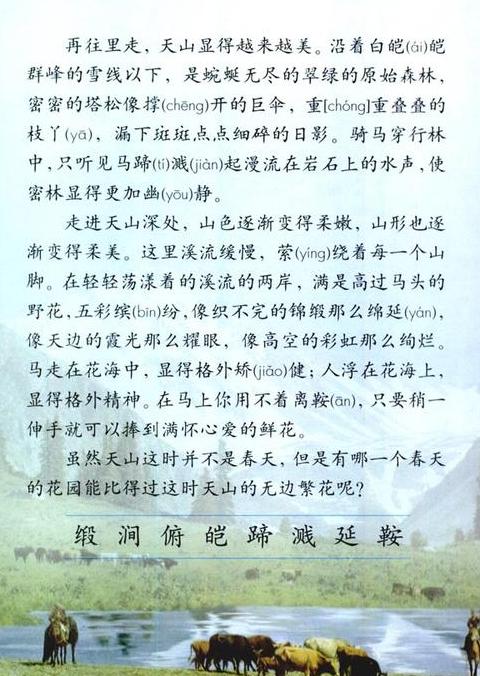 再往里走，天山显得越来越美。沿着白皑(ái)皑
群峰的雪线以下，是蜿蜒无尽的翠绿的原始森林，
密密的塔松像撑(chēng)开的巨伞，重[chóng]重叠叠的
枝丫(yā)，漏下斑斑点点细碎的日影。骑马穿行林
中，只听见马蹄(tí)溅(jiàn)起漫流在岩石上的水声，使
密林显得更加幽(yōu)静。
走进天山深处，山色逐渐变得柔嫩，山形也逐
渐变得柔美。这里溪流缓慢，萦(yíng)绕着每一个山
脚。在轻轻荡漾着的溪流的两岸，满是高过马头的
野花，五彩缤(bīn)纷，像织不完的锦缎那么绵延(yán)，
像天边的霞光那么耀眼，像高空的彩虹那么绚烂。
马走在花海中，显得格外矫(jiǎo)健；人浮在花海上，
显得格外精神。在马上你用不着离鞍(ān)，只要稍一
伸手就可以捧到满怀心爱的鲜花。
虽然天山这时并不是春天，但是有哪一个春天
的花园能比得过这时天山的无边繁花呢？
缎 涧 俯 皑 蹄 溅 延 鞍